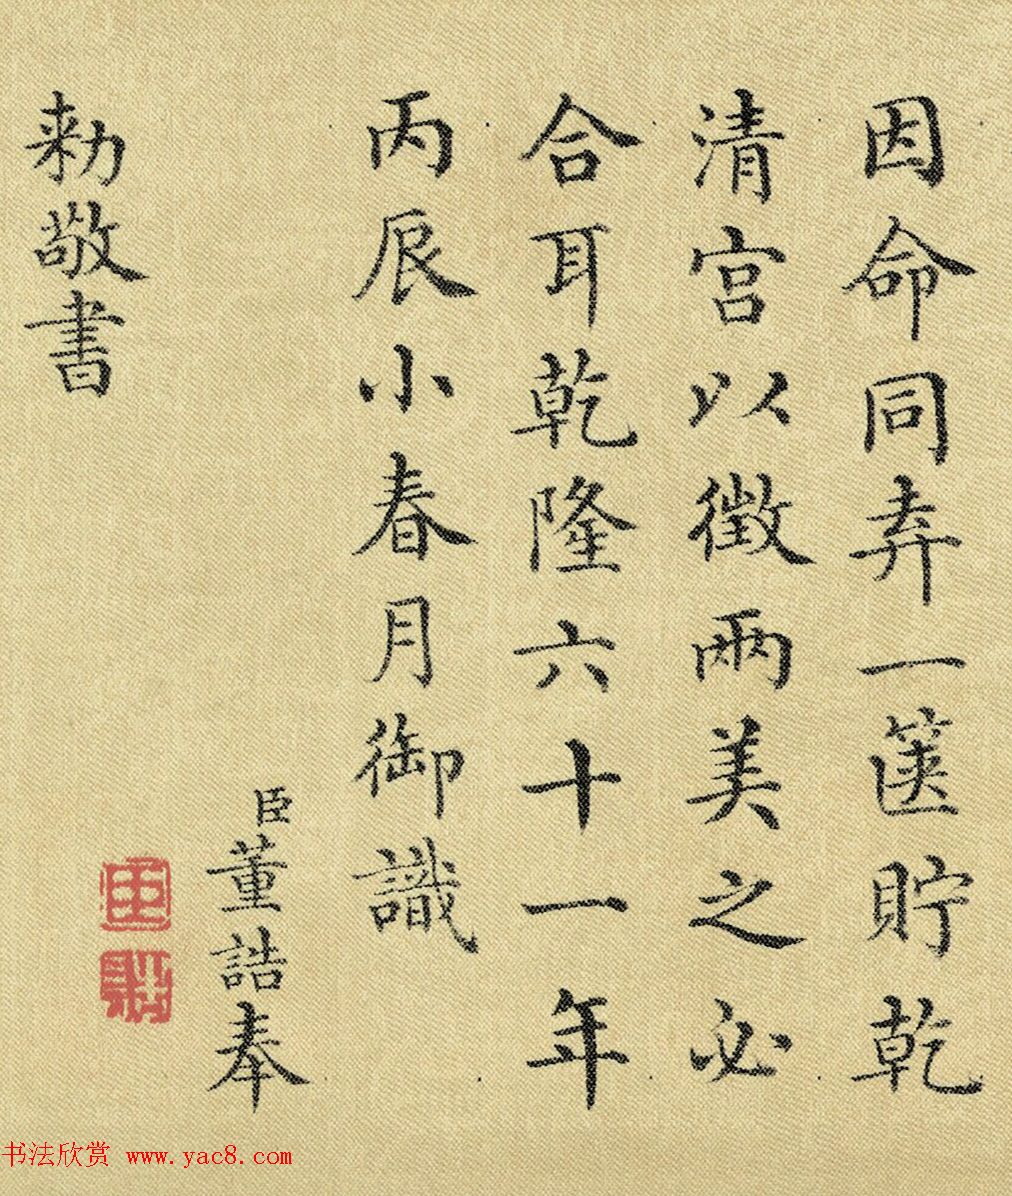 因命同弆一篋貯乾
清宫以徵兩美之必
合耳乾隆六十一年
丙辰小春月御識
臣董誥奉
勅敬書
书法欣赏 www.yac8.com